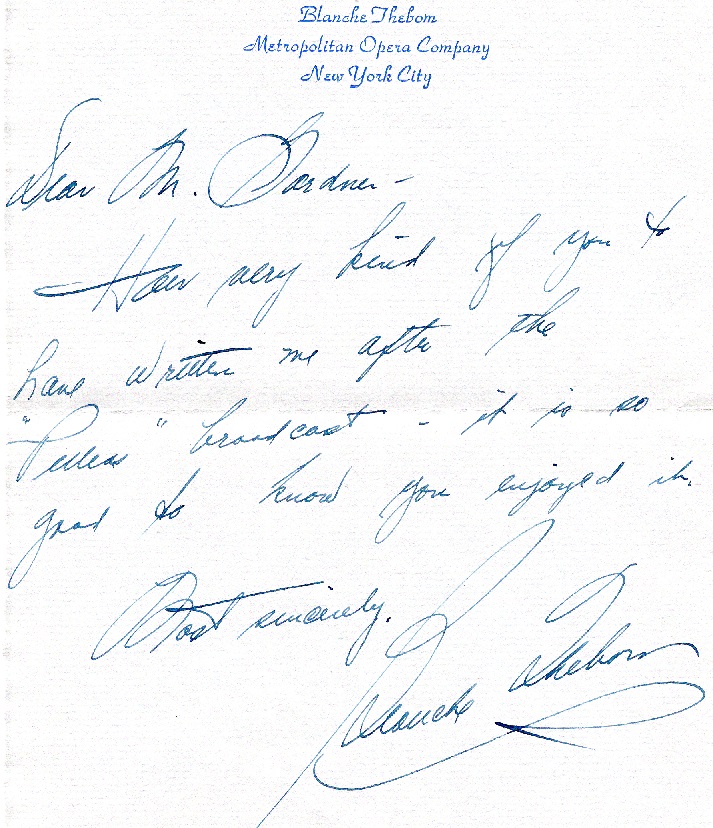 Blanche Thebom
Metropolitan Opera Company
New York City
Dear Mr. Gardner -
How very kind of you to
have written me after the
"Pelleas" broadcast - it is so
good to know you enjoyed it.
Most sincerely,
Blanche Thebom